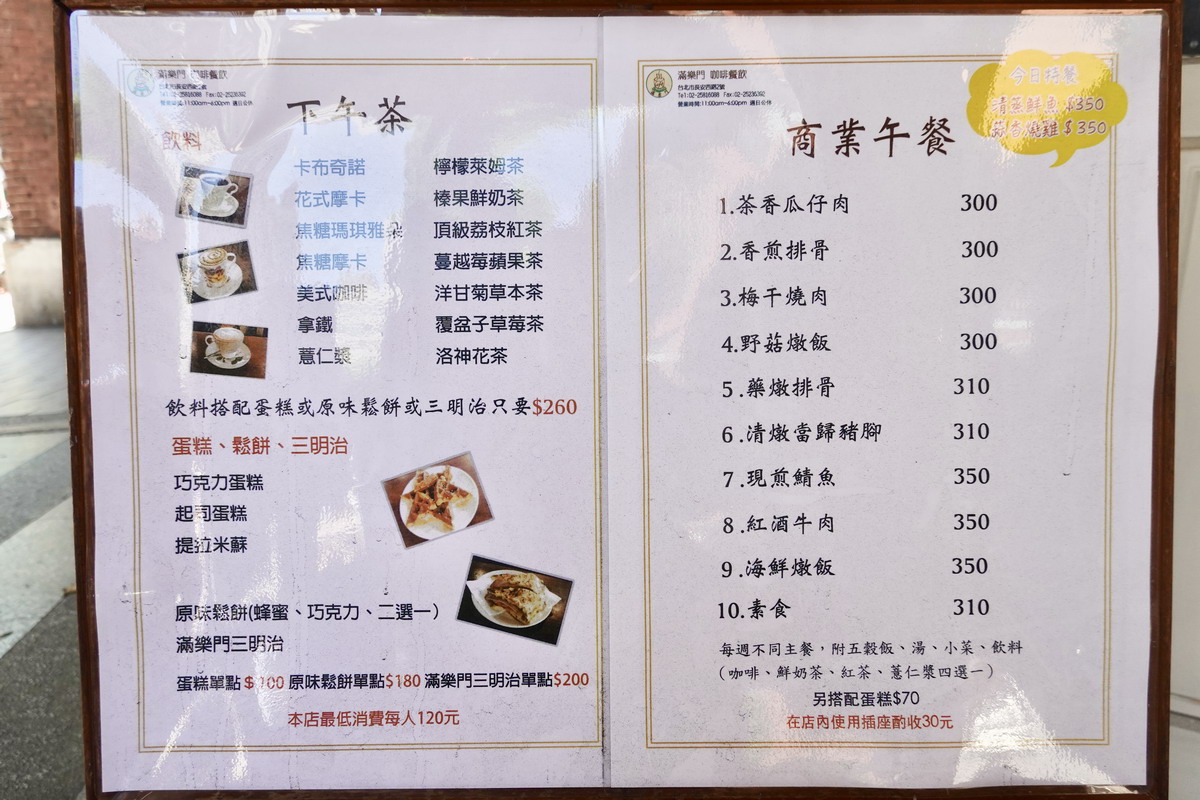 滿樂門 咖啡餐飲
台北市長安西路2號
Tel:02-25816088 Fax:02-25236392
營業時間:11:00am~6:00pm 週日公休
下午茶
飲料
卡布奇諾 檸檬萊姆茶
花式摩卡 榛果鮮奶茶
焦糖瑪琪雅朵 頂級荔枝紅茶
焦糖摩卡 蔓越莓蘋果茶
美式咖啡 洋甘菊草本茶
拿鐵 覆盆子草莓茶
薏仁漿 洛神花茶
飲料搭配蛋糕或原味鬆餅或三明治只要$260
蛋糕、鬆餅、三明治
巧克力蛋糕
起司蛋糕
提拉米蘇
原味鬆餅(蜂蜜、巧克力、二選一)
滿樂門三明治
蛋糕單點 原味鬆餅單點$180 滿樂門三明治單點$200
本店最低消費每人120元
滿樂門 咖啡餐飲
台北市長安西路2號
Tel:02-25816088 Fax:02-25236392
營業時間:11:00am~6:00pm 週日公休
今日特餐
清蒸鮮魚 $350
蒜香燒雞 $350
商業午餐
1.茶香瓜仔肉 300
2.香煎排骨 300
3.梅干燒肉 300
4.野菇燉飯 300
5.藥燉排骨 310
6.清燉當歸豬腳 310
7.現煎鯖魚 350
8.紅酒牛肉 350
9.海鮮燉飯 350
10.素食 310
每週不同主餐，附五穀飯、湯、小菜、飲料
(咖啡、鮮奶茶、紅茶、薏仁漿四選一)
另搭配蛋糕$70
在店內使用插座酌收30元